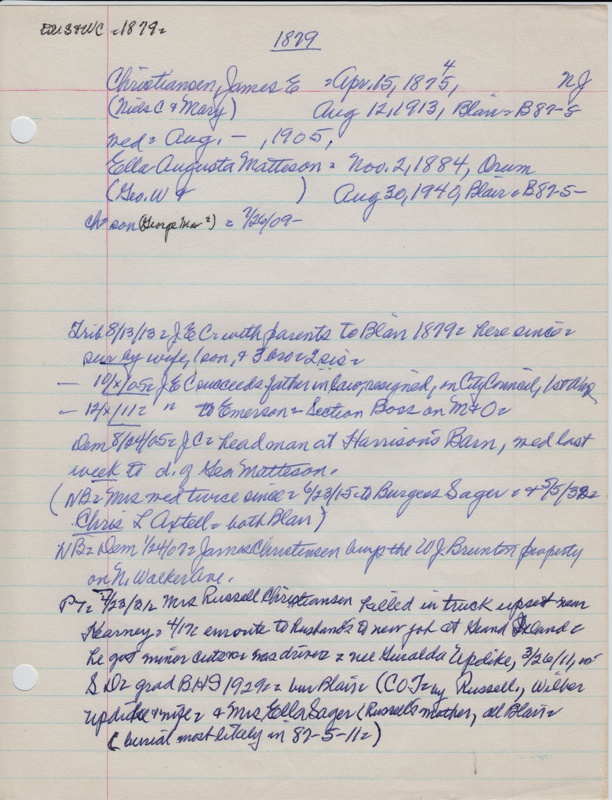 EDUS&WC =1879=
1879
Christiansen, James E = Apr. 15, 1875, 4 NJ
(Niels C & Mary) Aug 12, 1913, Blair = B87-5
med = Aug. -, 1905,
Ella Augusta Matteson = Nov. 2, 1884, Orum
(Geo. W & ) Aug 30, 1940, Blair = B87-5-
ch = son (George Mar ?) = 7/26/09-
Trib 8/13/13 = J E C = with parents to Blair 1879 = here since =
sur by wife, 1 son, + 3 bro = 2 sis =
- 10/x/05 = J E C succeeds father in law, resigned, on City Council, 1st Wd
- 12/x/11 = " to Emerson = Section Boss on M & O =
Dem 8/24/05 = J C = head man at Harrison's Barn, med last
week to d. of Geo Matteson.
(NB = Mrs med twice since = 6/23/15 = to Burgess Sager = + 3/5/32 =
Chris L Axtell = both Blair)
NB = Dem 1/24/07 = James Christensen buys the W J Brunton property
on N. Walker Ave.
PT = 4/23/31 = Mrs Russell Christiansen killed in truck upset near
Kearney = 4/17 = enroute to husband's new job at Grand Island =
he got minor cuts = was driver = nee Geralda Updike, 3/26/11, in
S D = grad BHS 1929 = bur Blair = (COT = by Russell, Wilber
Updike & wife = & Mrs Ella Sager (Russell's mother, all Blair =
(burial most likely in 87-5-11 =)